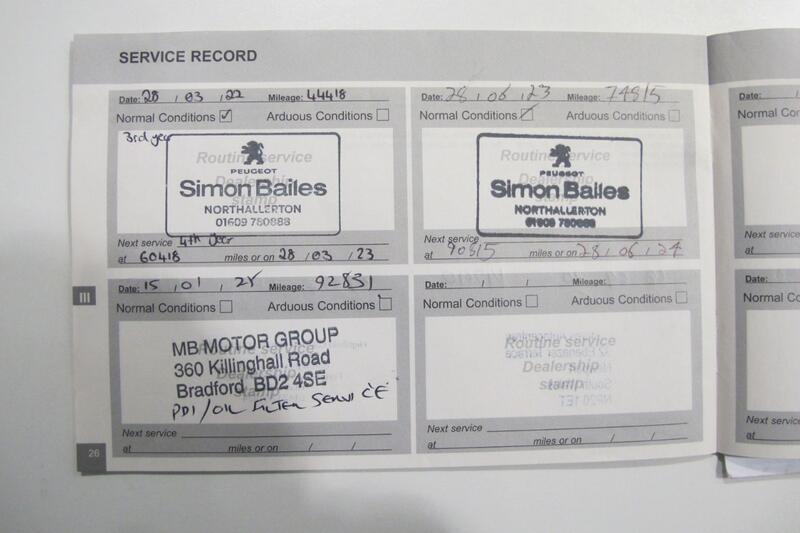 SERVICE RECORD
Date: 28 / 03 / 22 Mileage: 44418
Normal Conditions ✓ Arduous Conditions
3rd year
Routine service
Dealership
stamp
PEUGEOT
Simon Bailes
NORTHALLERTON
01609 780888
Next service 4th year
at 60418 miles or on 28 / 03 / 23
Date: 28 / 06 / 23 Mileage: 74815
Normal Conditions ✓ Arduous Conditions
Routine service
Dealership
stamp
PEUGEOT
Simon Bailes
NORTHALLERTON
01609 780888
Next service
at 90815 miles or on 28 / 06 / 24
Date: 15 / 01 / Mileage: 92831
Normal Conditions Arduous Conditions
Routine service
Dealership
stamp
MB MOTOR GROUP
360 Killinghall Road
Bradford BD2 4SE
PDI / OIL FILTER SERVICE
Next service
at miles or on / /
Date: / / Mileage:
Normal Conditions Arduous Conditions
Routine service
Dealership
stamp
Next service
at miles or on / /
III
26
Date:
Normal Co
Date:
Normal C